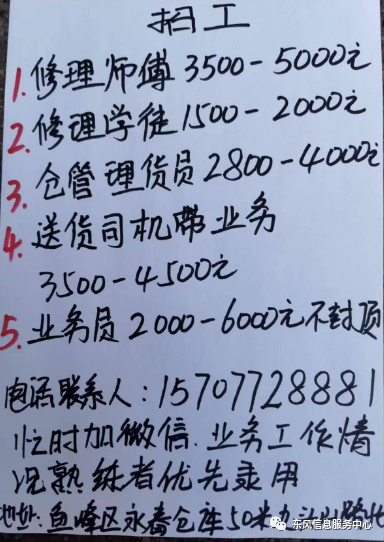 招工
1. 修理师傅 3500-5000元
2. 修理学徒 1500-2000元
3. 仓管理货员 2800-4000元
4. 送货司机带业务
3500-4500元
5. 业务员 2000-6000元不封顶
电话联系人:15707728881
忙时加微信. 业务工作情
况熟练者优先录用
地址:鱼峰区永春仓库50米
东风信息服务中心